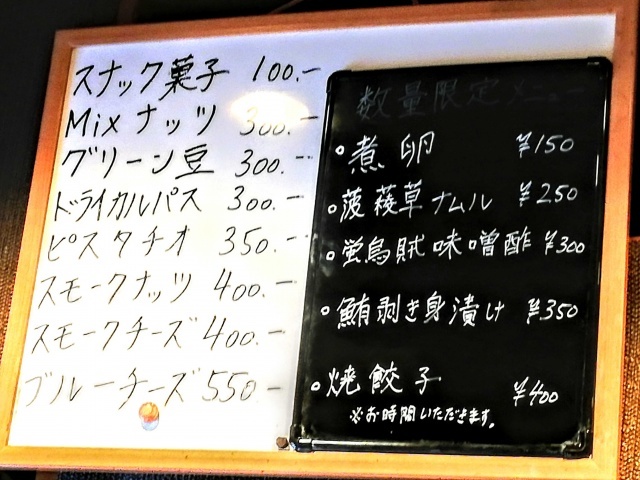 スナック菓子 100.-
Mixナッツ 300.-
グリーン豆 300.-
ドライカルパス 300.-
ピスタチオ 350.-
スモークナッツ 400.-
スモークチーズ 400.-
ブルーチーズ 550.-
数量限定メニュー
・煮卵 ¥150
・菠薐草ナムル ¥250
・蛍烏賊味噌酢 ¥300
・鮪剥き身漬け ¥350
・焼餃子 ¥400
※お時間いただきます。